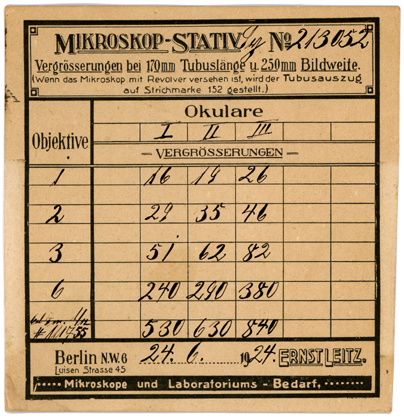 MIKROSKOP-STATIV No 213052
Vergrösserungen bei 170mm Tubuslänge u. 250mm Bildweite.
(Wenn das Mikroskop mit Revolver versehen ist, wird der Tubusauszug
auf Strichmarke 152 gestellt.)
Objektive Okulare
I II III
— VERGRÖSSERUNGEN —
1 16 19 26
2 29 35 46
3 51 62 82
6 240 290 380
530 630 840
Berlin N.W.6 24. 6. 1924. ERNST LEITZ.
Luisen Strasse 45
Mikroskope und Laboratoriums-Bedarf.